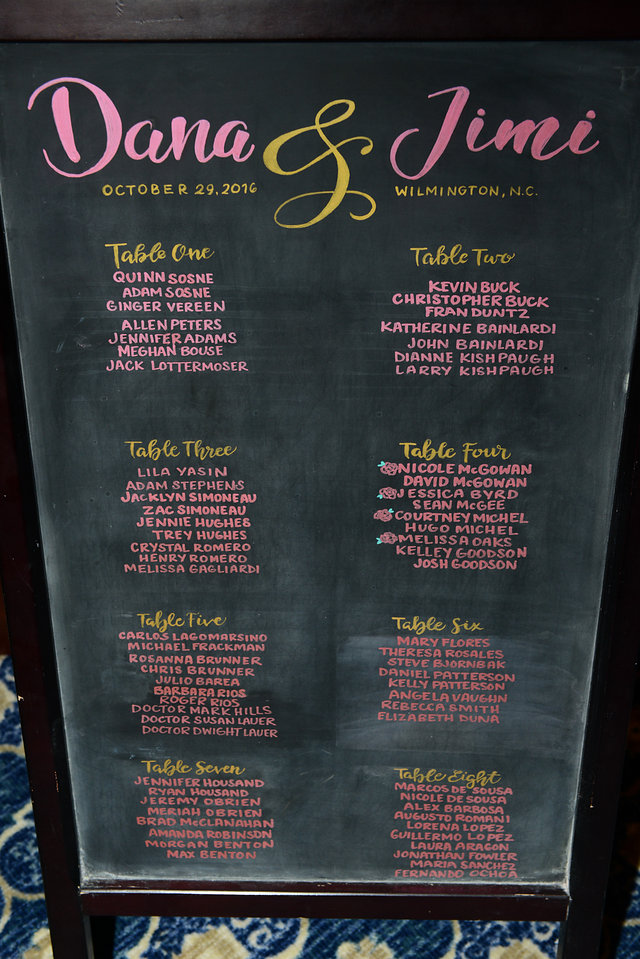 Dana & Jimi
OCTOBER 29, 2016
WILMINGTON, N.C.
Table One
QUINN SOSNE
ADAM SOSNE
GINGER VEREEN
ALLEN PETERS
JENNIFER ADAMS
MEGHAN BOUSE
JACK LOTTERMOSER
Table Two
KEVIN BUCK
CHRISTOPHER BUCK
FRAN DUNTZ
KATHERINE BAINLARDI
JOHN BAINLARDI
DIANNE KISHPAUGH
LARRY KISHPAUGH
Table Three
LILA YASIN
ADAM STEPHENS
JACKLYN SIMONEAU
ZAC SIMONEAU
JENNIE HUGHES
TREY HUGHES
CRYSTAL ROMERO
HENRY ROMERO
MELISSA GAGLIARDI
Table Four
NICOLE McGOWAN
DAVID McGOWAN
JESSICA BYRD
SEAN McGEE
COURTNEY MICHEL
HUGO MICHEL
MELISSA OAKS
KELLEY GOODSON
JOSH GOODSON
Table Five
CARLOS LAGOMARSINO
MICHAEL FRACKMAN
ROSANNA BRUNNER
CHRIS BRUNNER
JULIO BAREA
BARBARA RIOS
ROGER RIOS
DOCTOR MARK HILLS
DOCTOR SUSAN LAUER
DOCTOR DWIGHT LAUER
Table Six
MARY FLORES
THERESA ROSALES
STEVE BJORNBAK
DANIEL PATTERSON
KELLY PATTERSON
ANGELA VAUGHN
REBECCA SMITH
ELIZABETH DUNA
Table Seven
JENNIFER HOUSAND
RYAN HOUSAND
JEREMY OBRIEN
MERIAH OBRIEN
BRAD McCLANAHAN
AMANDA ROBINSON
MORGAN BENTON
MAX BENTON
Table Eight
MARCOS DE SOUSA
NICOLE DE SOUSA
ALEX BARBOSA
AUGUSTO ROMANI
LORENA LOPEZ
GUILLERMO LOPEZ
LAURA ARAGON
JONATHAN FOWLER
MARIA SANCHEZ
FERNANDO OCHOA